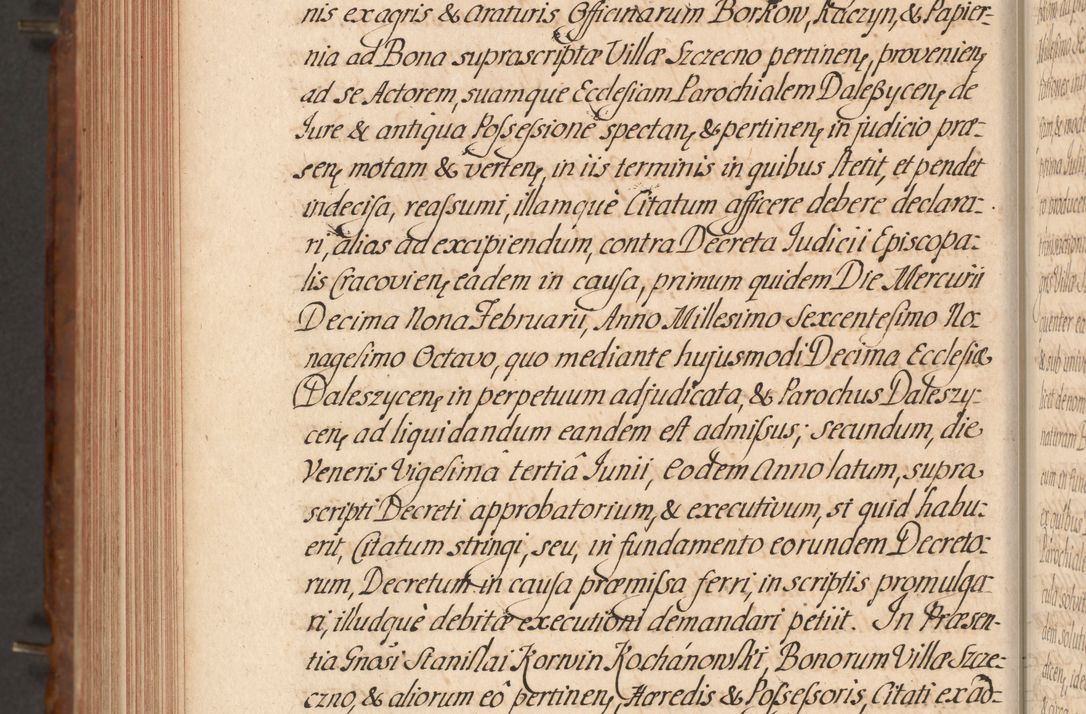 nis ex agris & araturis Officinarum Borkow, Kaczyn, & Papier-
nia ad Bona suprascriptæ Villæ Szczecno pertinen, provenien
ad se Actorem, suamque Ecclesiam Parochialem Daleszycen, de
Iure & antiqua Possessione spectan, & pertinen, in judicio præ-
sen, motam & verten, in iis terminis in quibus stetit, et pendet
indecisa, reassumi, illamquè Citatum afficere debere declara-
ri, alias ad excipiendum, contra Decreta Iudicii Episcopa-
lis Cracovien, eadem in causa, primum quidem Die Mercurii
Decima Nona Februarii, Anno Millesimo Sexcentesimo No-
nagesimo Octavo, quo mediante hujusmodi Decima Ecclesiæ
Daleszycen, in perpetuum adjudicata, & Parochus Daleszy-
cen, ad liquidandum eandem est admissus; secundum, die
Veneris Vigesimâ tertiâ Iunii, Eodem Anno latum, supra
scripti Decreti approbatorium, & executivum, si quid habu-
erit, Citatum stringi, seu, in fundamento eorundem Decreto-
rum, Decretum in causa præmissa ferri, in scriptis promulga-
ri, illudquè debitæ executioni demandari petiit. In Præsen-
tia Gnosi Stanislai Korwin Kochánowski, Bonorum Villæ Szcze-
czno, & aliorum eô pertinen, Hæredis & Possessoris, Citati ex ad-